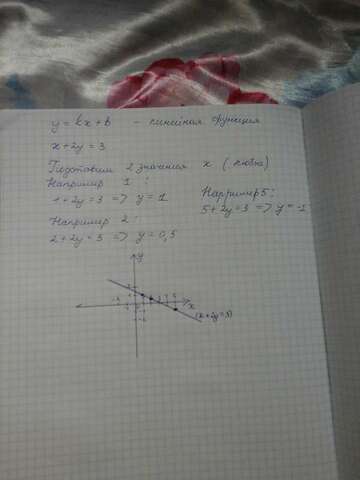 y = kx + b - линейная функция
x + 2y = 3
Подставим 2 значения x (любые)
Например 1:
1 + 2y = 3 => y = 1
Например 5:
5 + 2y = 3 => y = -1
Например 2:
2 + 2y = 3 => y = 0,5
y
x
(x + 2y = 3)